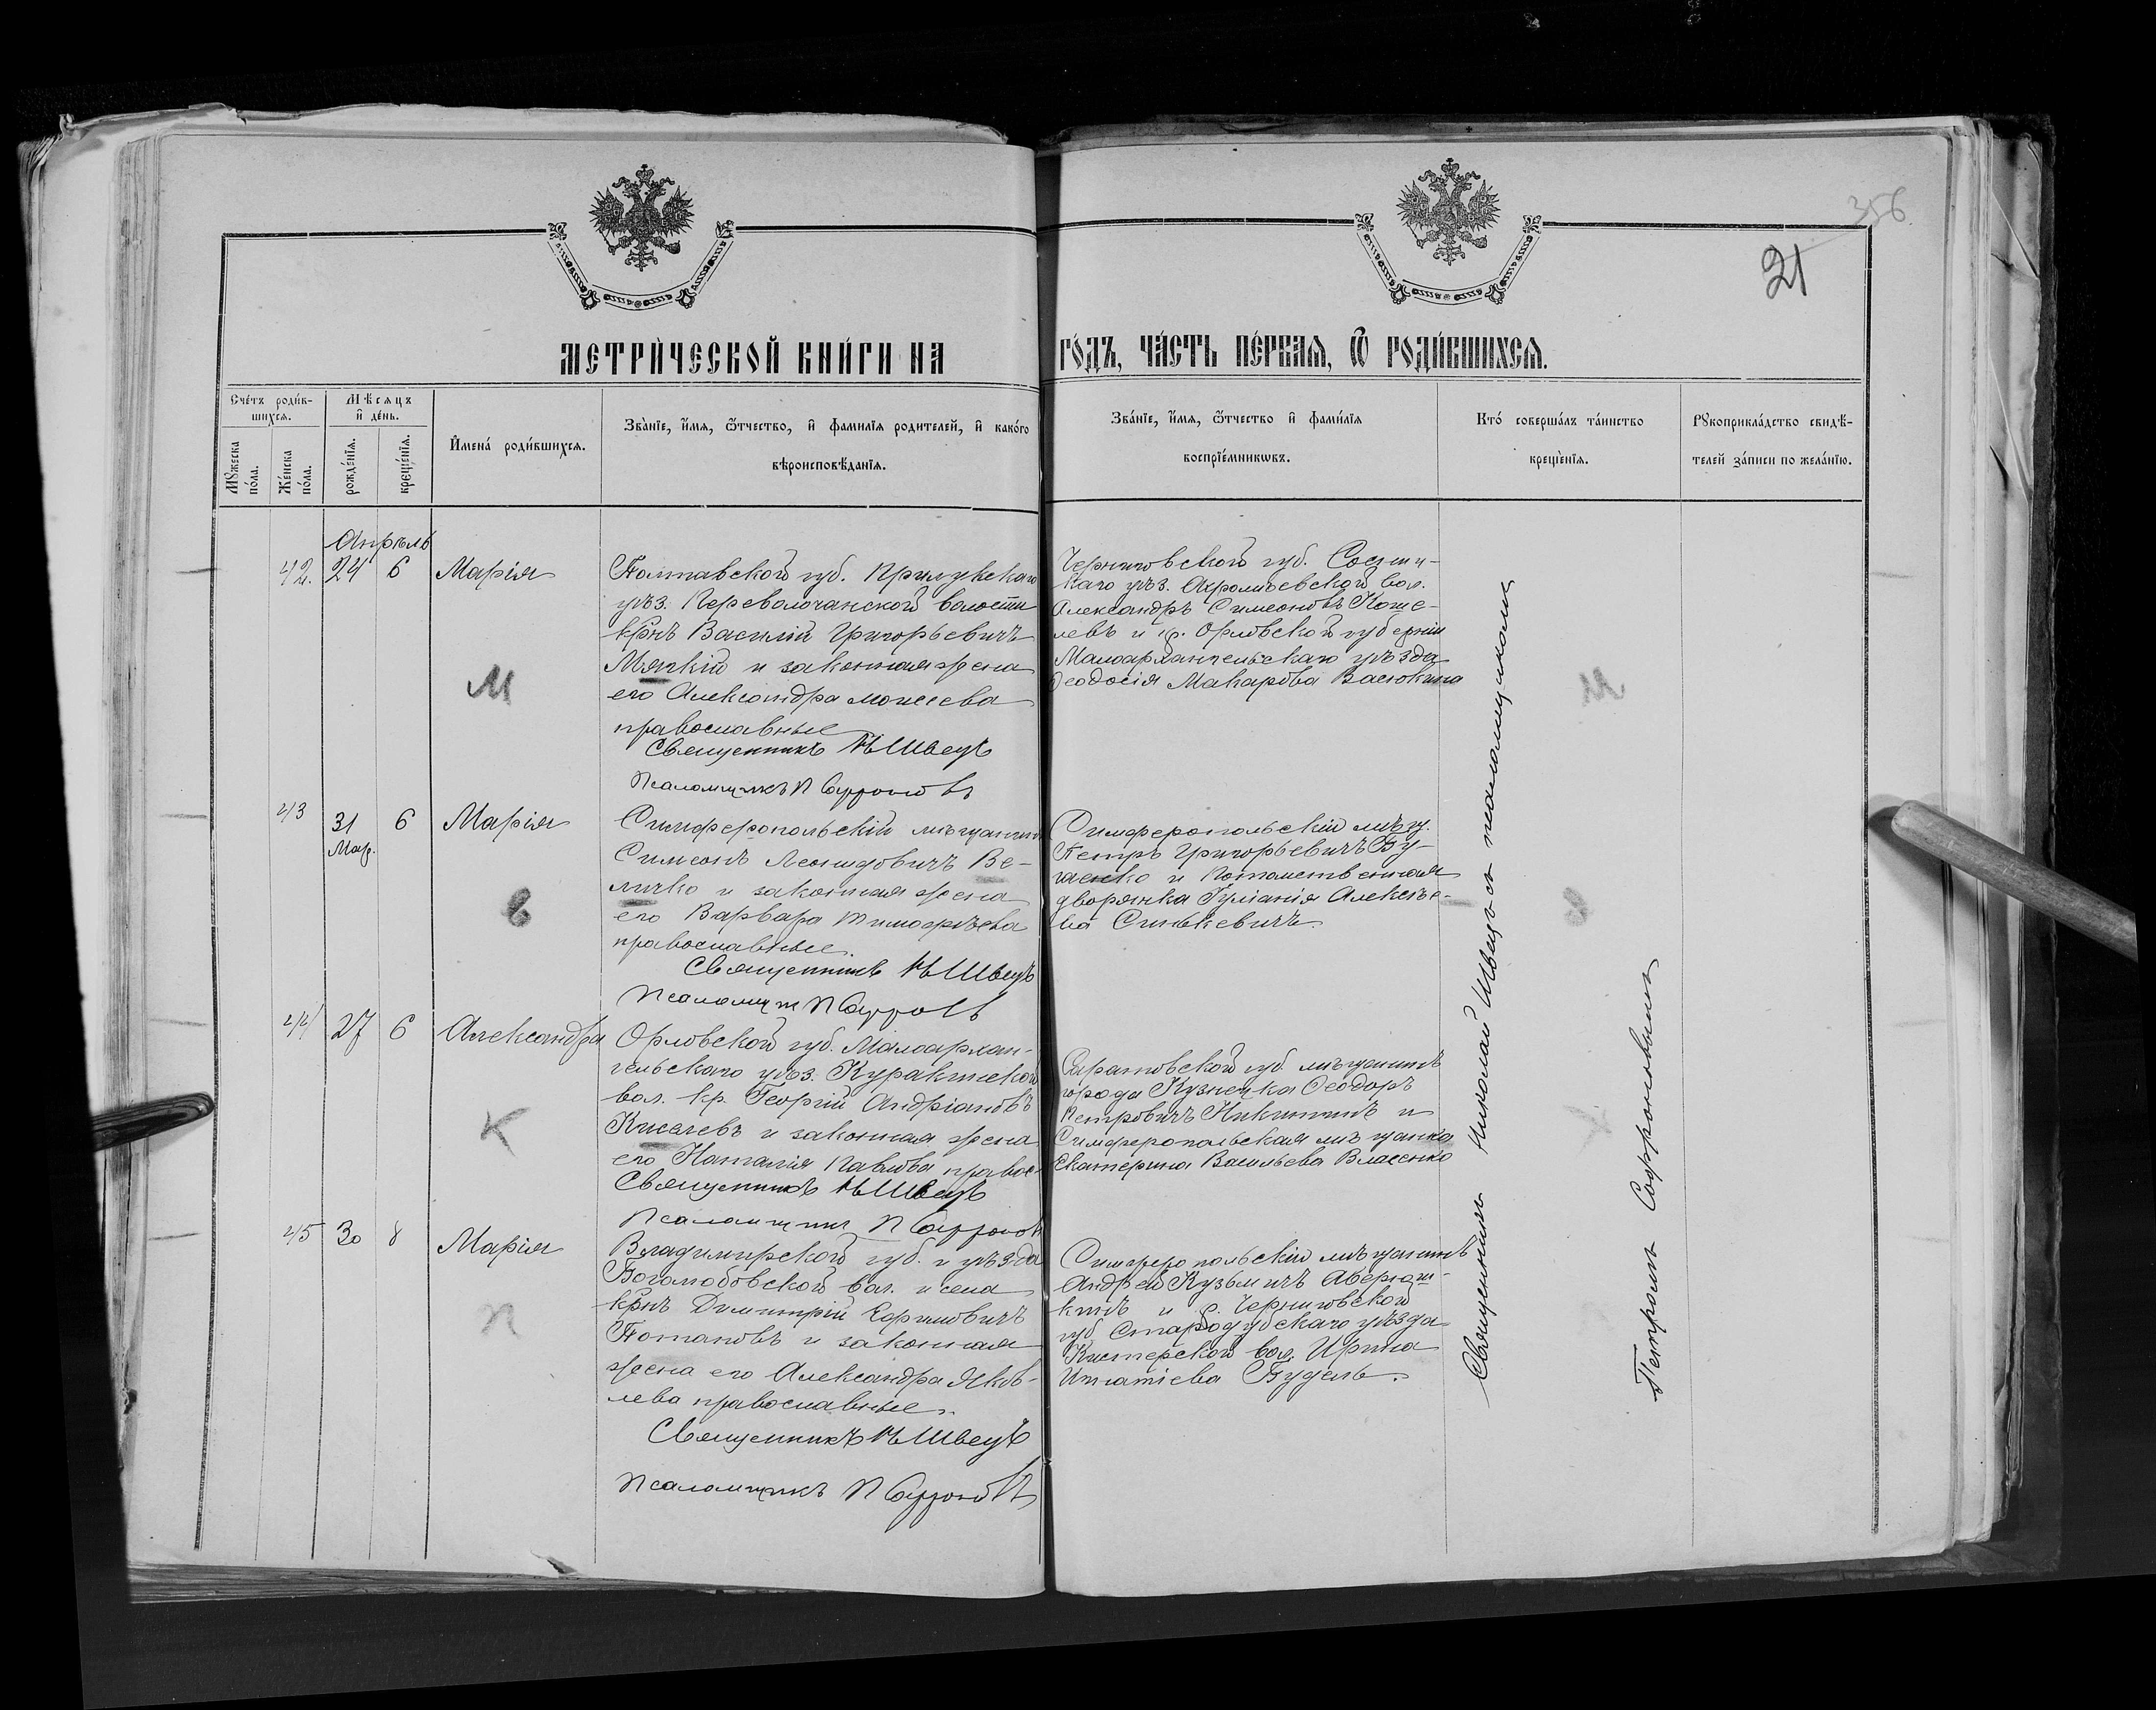 356
21
МЕТРИ́ЧЕСКОЙ КНИ́ГИ НА
ГО́ДЪ, ЧА́СТЬ ПЕ́РВАЯ, Ѿ РОДИ́ВШИХСЯ.
Сче́тъ роди́в-
шихся.
Мѣсяцъ
и де́нь.
Му́жеска
по́ла.
Же́нска
по́ла.
рожде́нїя.
креще́нїя.
Имена́ роди́вшихся.
Зва́нїе, и́мя, ѻ́тчество, и фами́лїя родителей, и како́го
вѣроисповѣ́данїя.
Зва́нїе, и́мя, ѻ́тчество и фами́лїя
воспрїе́мникѡвъ.
Кто́ соверша́лъ та́инство
креще́нїя.
Рꙋкоприкла́дство свидѣ́-
телей за́писи по жела́нїю.
Апрѣль
42. 24 6 Марія
Полтавской губ. Прилукскаго
уѣз. Переволочанской волости
крнъ Василій Григорьевичъ
Мяткій и законная жена
его Александра Моисеева
православные
Священникъ Н Швецъ
Псаломщикъ П Софроновъ
Черниговской губ. Сосни-
каго уѣз. волол.
Александръ Симеоновъ Коше-
левъ и кр. Орловской губерніи
Малоархангельскаго уѣзда
Ѳеодосія Макарова Васюкина
М
М
43 31 6 Марія
Мар.
Симферопольскій мѣщанинъ
Симеонъ Леонидовичъ Ве-
личко и законная жена
его Варвара Тимофѣева
православные.
Священникъ Н Швецъ
Псаломщ П Софроновъ
Симферопольскій мѣщ.
Петръ Григорьевичъ Бу-
ченко и потомственная
дворянка Іуліанія Алексѣе-
ва Синькевичъ.
В
44 27 6 Александра
Орловской губ. Малоархан-
гельскаго уѣз. Куракинской
вол. кр. Георгій Андріановъ
Киселевъ и законная жена
его Наталія Павлова правос
Священникъ Н Швецъ
Псаломщик П Софронов
Саратовской губ. мѣщанинъ
города Кузнецка Ѳеодоръ
Петровичъ Никитинъ и
Симферопольская мѣщанка
Екатерина Васильева Власенко
К
45 30 8 Марія
Владимирской губ. и уѣзда
Боголюбовской вол. и села
крнъ Димитрій Ефимовичъ
Потаповъ и законная
жена его Александра Яков-
лева православные.
Священникъ Н Швецъ
Псаломщикъ П Софроновъ
Симферопольскій мѣщанинъ
Андрей Кузьмичъ Аверюш-
кинъ и Черниговской
губ. Стародубскаго уѣзда
Кистерской вол. Ирина
Игнатіева Будель.
П
Священникъ Николай Швецъ съ псаломщикомъ
Петромъ Софроновымъ